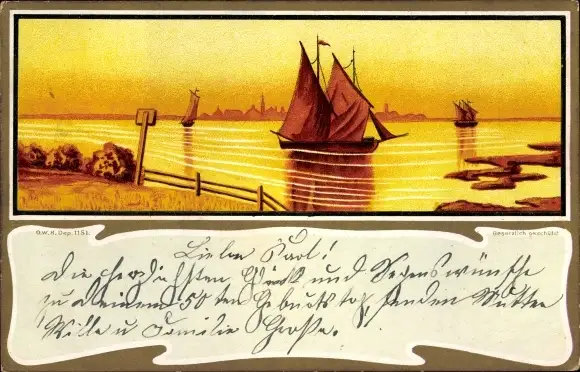 G.W.H. Dep. 1151.
Gesetzlich geschützt
Lieber Karl!
Die herzlichsten Glück und Segenswünsche
zu Deinem 50 ten Geburtstag, senden Mutter
Wille u Familie Große.